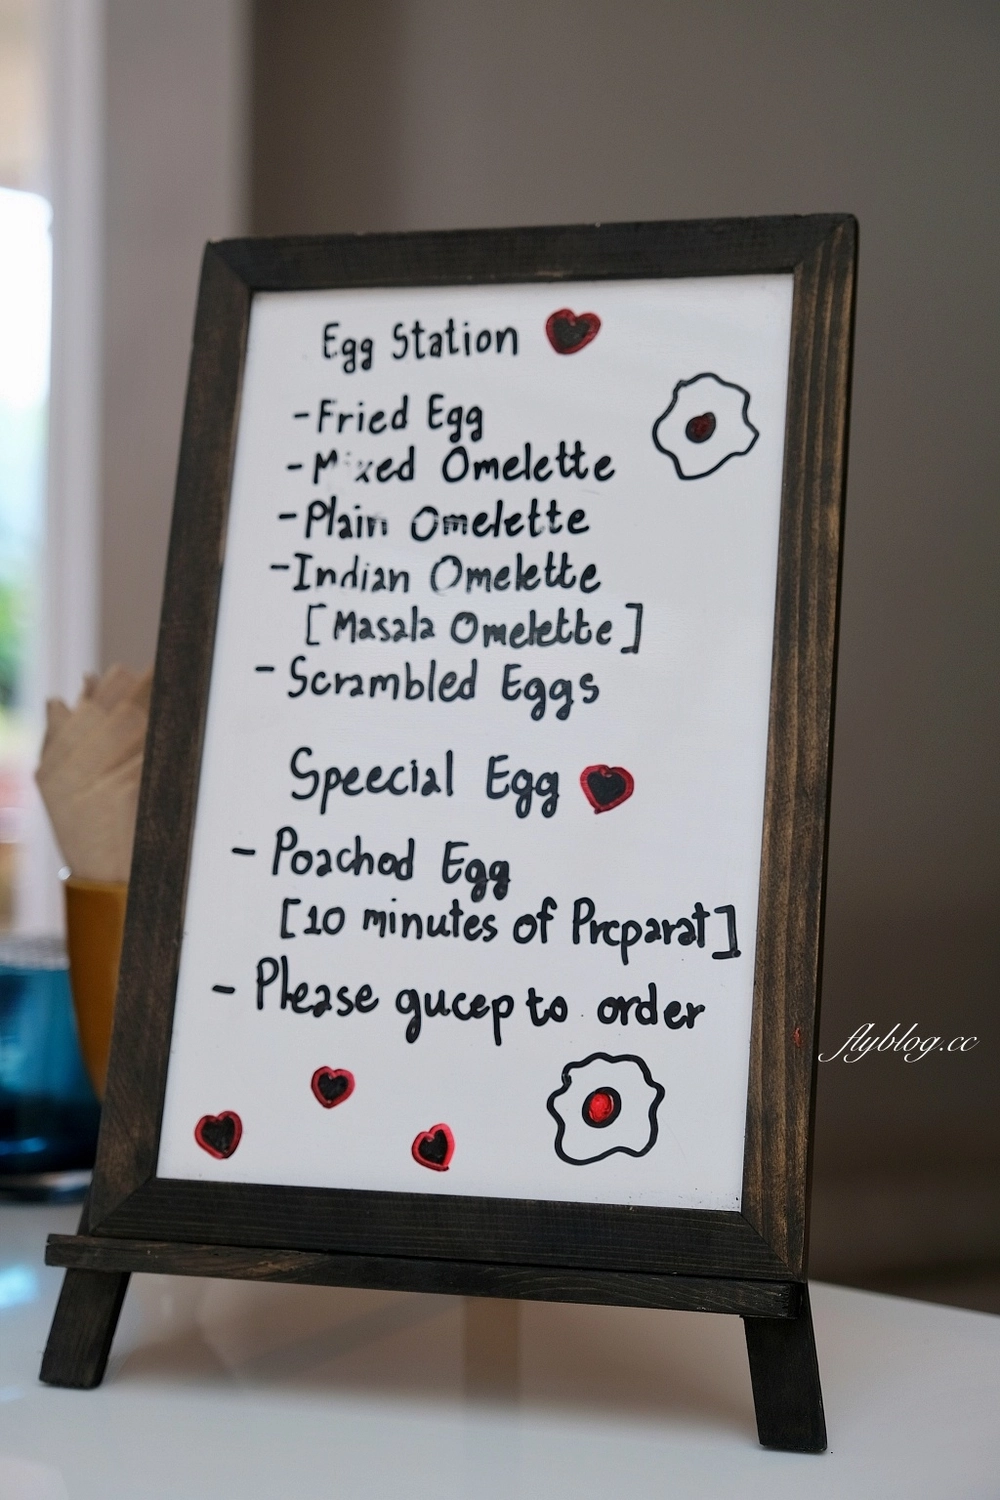 Egg Station
- Fried Egg
- Mixed Omelette
- Plain Omelette
- Indian Omelette
[Masala Omelette]
- Scrambled Eggs
Speecial Egg
- Poachod Egg
[10 minutes of Preparat]
- Please gucep to order
flyblog.cc